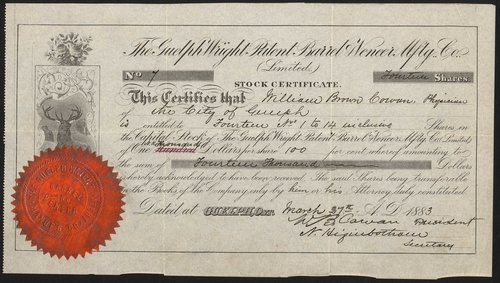 The Guelph Wright Patent Barrel & Veneer Mf'tg. Co.
(Limited)
No 7 Fourteen Shares.
STOCK CERTIFICATE.
This Certifies that William Brown Cowan, Physician
of the City of Guelph
is entitled to Fourteen Nos 1 to 14 inclusive Shares in
the Capital Stock of The Guelph Wright Patent Barrel & Veneer Mf'tg. Co. Limited
of One Thousand Hundred Dollars per share 100 per cent whereof amounting to
the sum Fourteen Thousand Dollars
is hereby acknowledged to have been received. The said Shares being transferable
in the Books of the Company only by him or his Attorney duly constituted
Dated at GUELPH, Ont. March 27th A.D. 1883
W B Cowan President
N. Higinbotham
Secretary